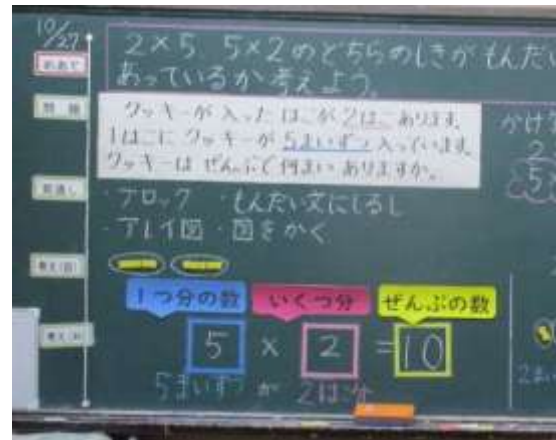 10/27
めあて
2×5 5×2のどちらのしきがもんだい
あっているか考えよう。
問題
クッキーが入ったはこが2はこあります。
1はこにクッキーが5まいずつ入っています。
クッキーはぜんぶで何まいありますか。
かけ
見通し
・ブロック ・もんだい文にしるし
・アレイ図 ・図をかく
1つ分の数 いくつ分 ぜんぶの数
5 × 2 = 10
5まいずつ が 2はこ分